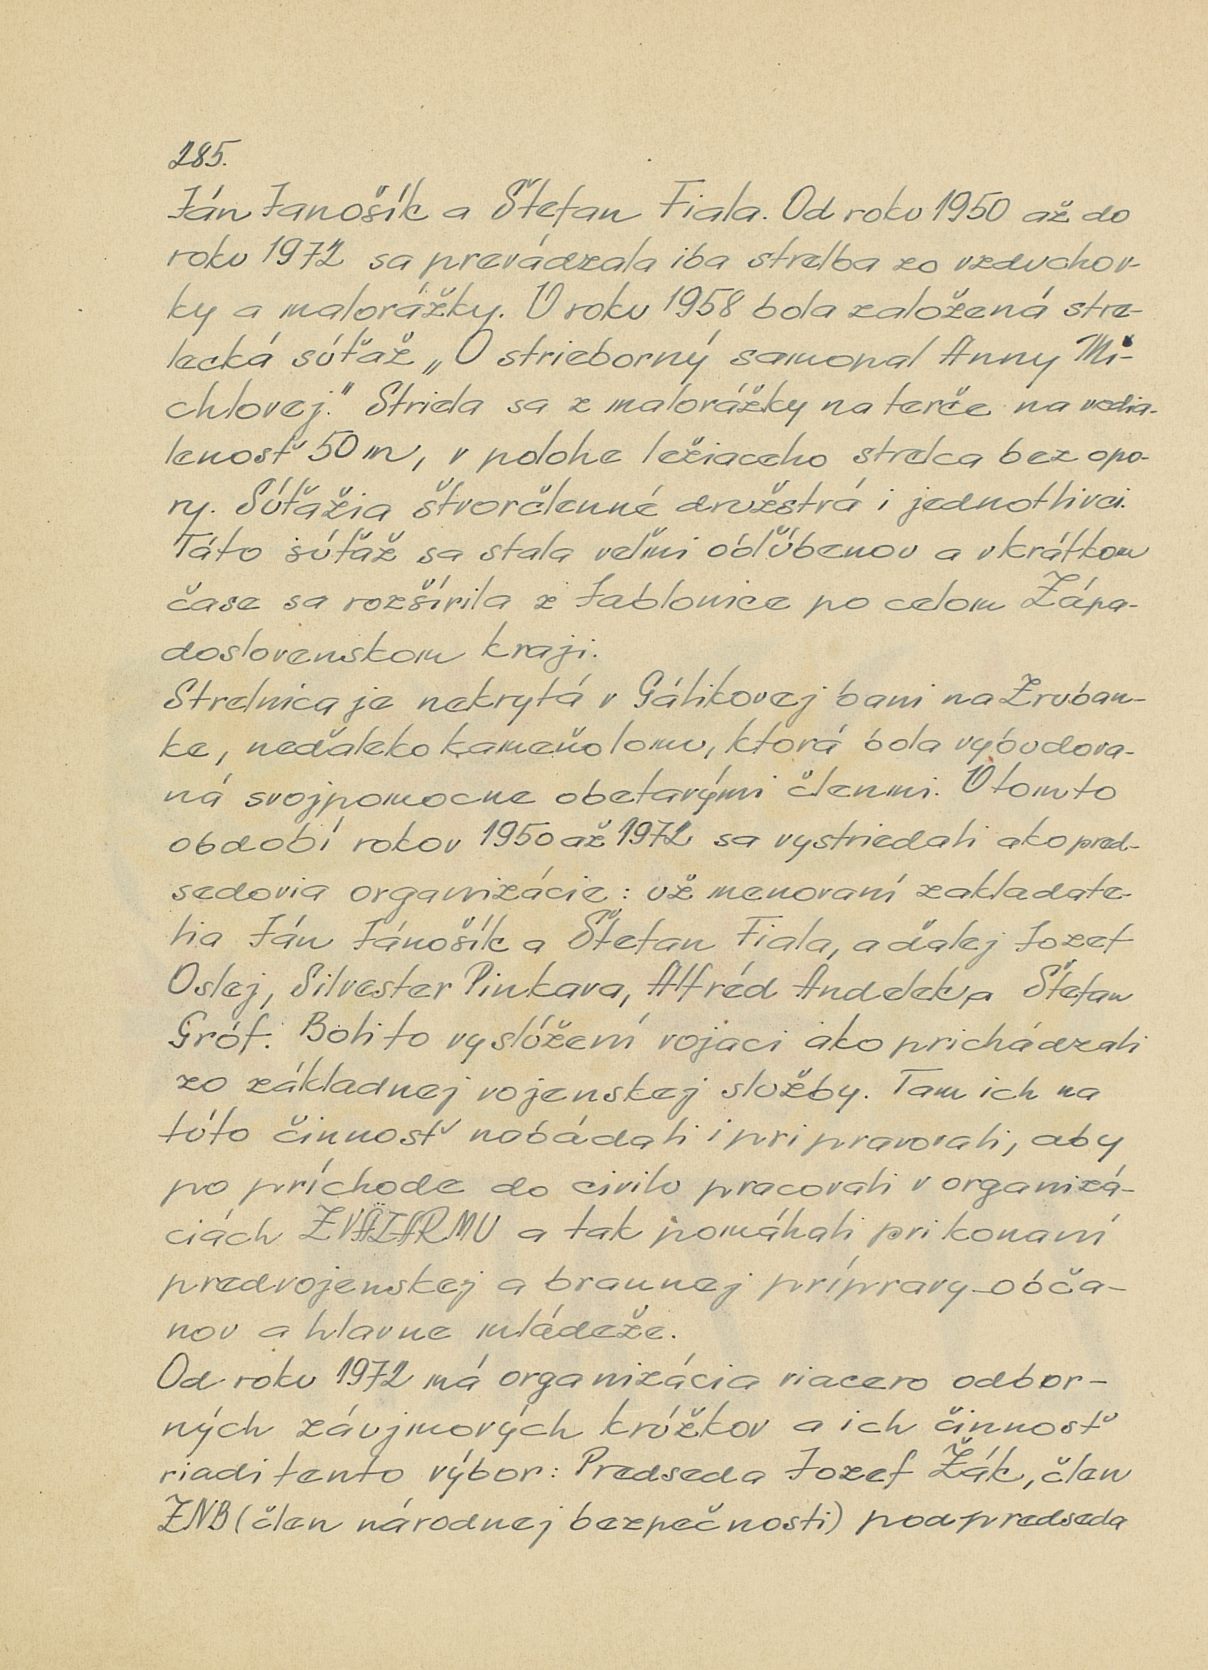 285.
Ján Janošík a Štefan Fiala. Od roku 1950 až do
roku 1972 sa prevádzala iba strelba zo vzduchov-
ky a malorážky. V roku 1958 bola založená stre-
lecká súťaž „O strieborný samopal Anny Mi-
chlovej." Striela sa z malorážky na terče na vzdia-
lenosť 50 m, v polohe ležiaceho strelca bez opo-
ry. Súťažia štvorčlenné družstvá i jednotlivci.
Táto súťaž sa stala veľmi obľúbenou a vkrátkom
čase sa rozšírila z Jablonice po celom Zápa-
doslovenskom kraji.
Strelnica je nekrytá v Gálikovej bani na Zruban-
ke, neďaleko kameňolomu, ktorá bola vybudova-
ná svojpomocne obetavými členmi. V tomto
období rokov 1950 až 1972 sa vystriedali ako pred-
sedovia organizácie: už menovaní zakladate-
lia Ján Jánošík a Štefan Fiala, a ďalej Jozef
Oslej, Silvester Pinkava, Alfréd Andelek a Štefan
Gróf. Boli to vyslúžení vojaci ako prichádzali
zo základnej vojenskej služby. Tam ich na
túto činnosť nabádali i pripravovali, aby
po príchode do civilu pracovali v organizá-
ciách ZVÄZARMU a tak pomáhali pri konaní
predvojenskej a brannej prípravy obča-
nov a hlavne mládeže.
Od roku 1972 má organizácia viacero odbor-
ných záujmových krúžkov a ich činnosť
riadi tento výbor: Predseda Jozef Žák, člen
ZNB (člen národnej bezpečnosti) podpredseda